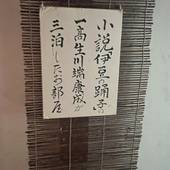 小説伊豆の踊子の
一高生川端康成が
三泊したお部屋